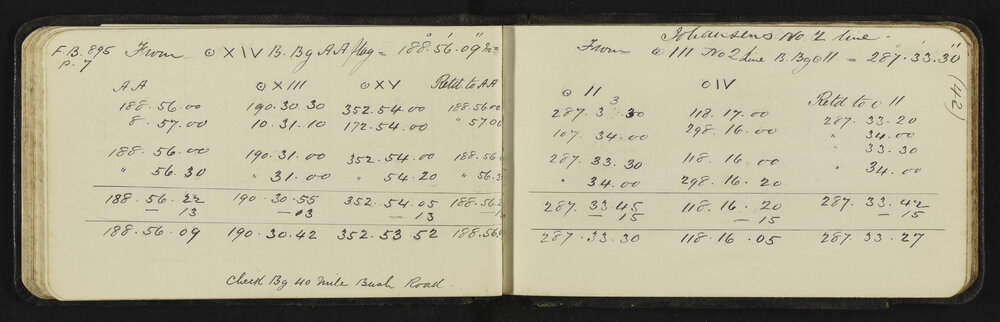 F.B. 895
p. 7
From ⊙ XIV B. Bg A A flag = 188°.56'.09" Mn
A A ⊙ XIII ⊙ XV Retd to A A
188.56.00 190.30 30 352.54.00 188.56 00
8.57.00 10.31.10 172.54.00 " 57 00
188.56.00 190.31.00 352.54.00 188.56.
" 56.30 " 31.00 " 54.20 " 56.3
188.56.22 190.30.55 352.54.05 188.56.2
— 13 — 13 — 13 — 1
188.56.09 190.30.42 352.53.52 188.56.0
Check Bg 40 Mile Bush Road.
Johansens No. 2 line.
From ⊙ III No 2 line B. Bg ⊙ II = 287°.33'.30"
(42)
⊙ II ⊙ IV Retd to ⊙ II
287.33.30 118.17.00 287.33.20
107.34.00 298.16.00 " 34.00
287.33.30 118.16.00 " 33.30
" 34.00 298.16.20 " 34.00
287.33.45 118.16.20 287.33.42
— 15 — 15 — 15
287.33.30 118.16.05 287.33.27